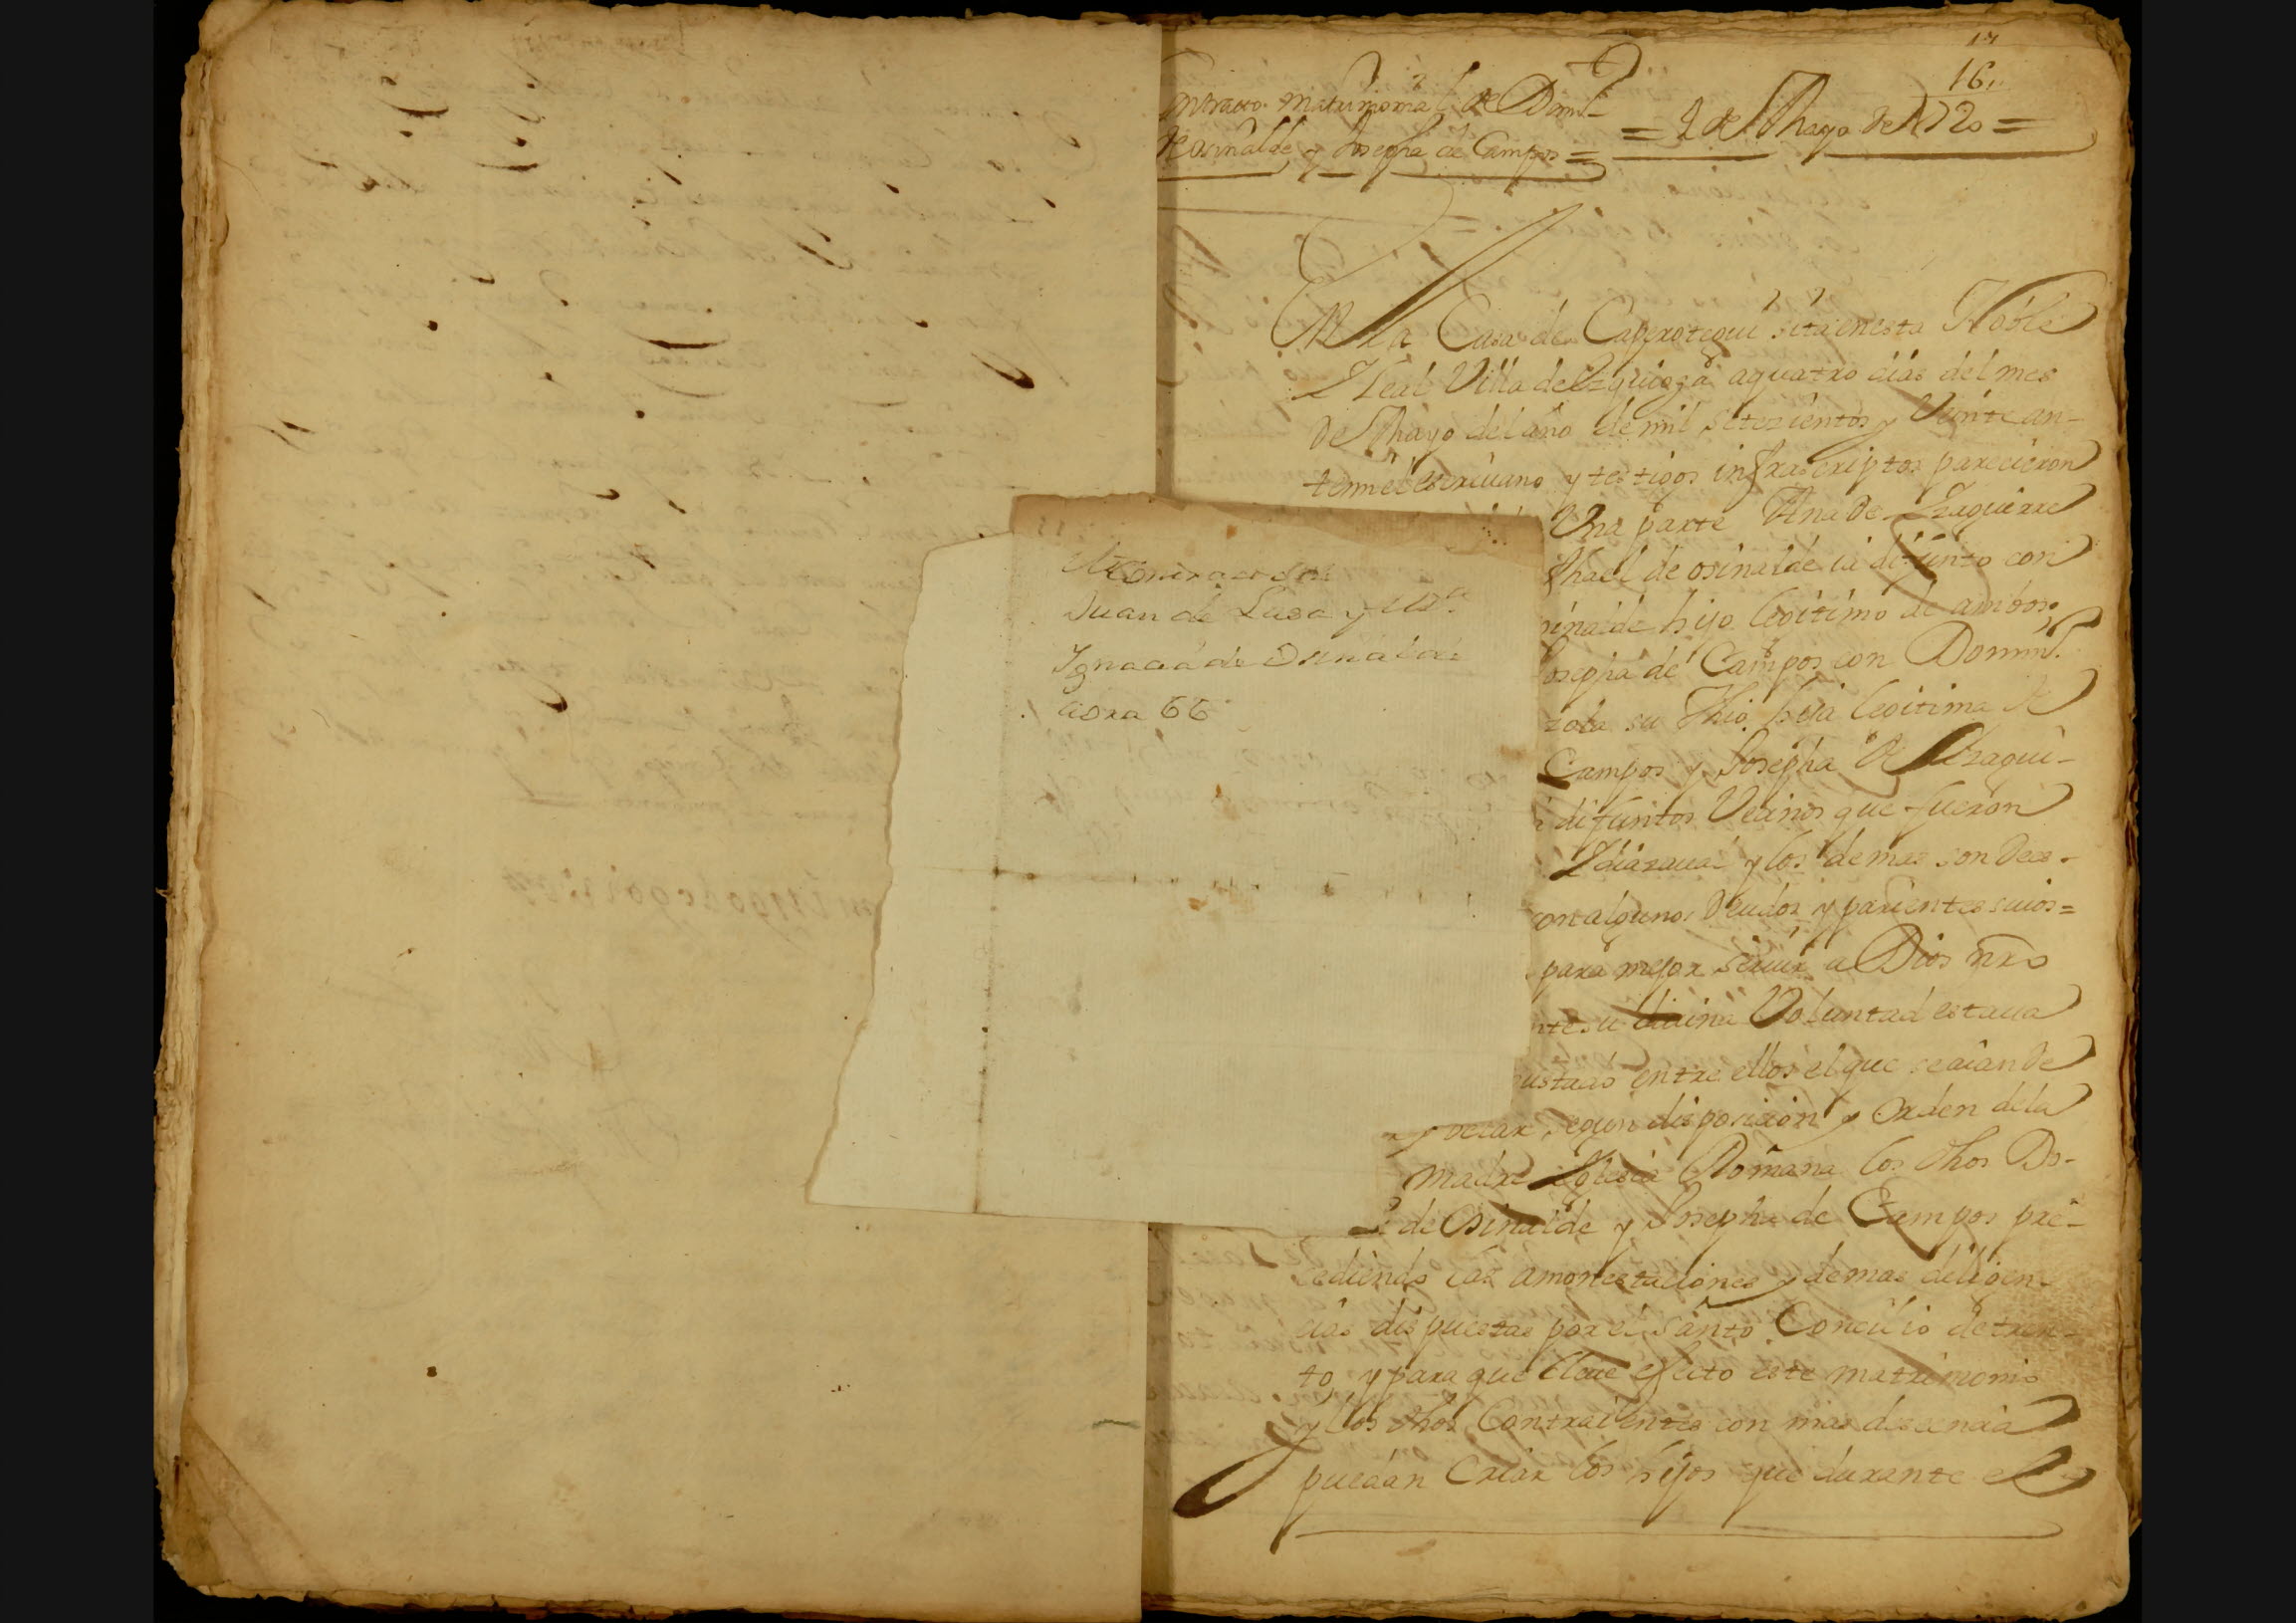 17
16
Contracto matrimonial de Domº
de Osinalde y Josepha de Campos =
= 4 de Mayo de 1720 =
En la Casa de Caperotegui sita en esta Noble
y Leal Villa de Ezquioga a quatro dias del mes
de Mayo del año de mil setezientos y Veinte an-
temi el escriuano y testigos infraescriptos parecieron
Una parte Ana de Izaguirre
phael de osinalde ia difunto con
sinalde hijo legitimo de ambos,
Josepha de Campos con Domin.º
zola su Thio, hija legitima de
Campos y Josepha de Izagui-
difuntos Vecinos que fueron
Idiazaual y los demas son de es-
con algunos deudos y parientes suios =
para mejor seruir a Dios nro
nte su diuina Voluntad estaua
ustado entre ellos el que se aian de
y velar segun disposicion y Orden de la
madre Iglesia Romana los dhos Do-
de Osinalde y Josepha de Campos pre-
cediendo las amonestaciones y demas diligen-
cias dispuestas por el Santo Concilio de tren-
to, y para que lleue efecto este matrimonio
y los dhos Contraientes con mas desencia
puedan Criar los hijos que durante el
El Contracto de
Juan de Lasa y Mª
Ignacia de Osinalde
aora 66